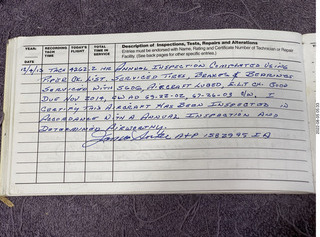 YEAR: RECORDING TACH TIME TODAY'S FLIGHT TOTAL TIME IN SERVICE Description of Inspections, Tests, Repairs and Alterations
DATE Entries must be endorsed with Name, Rating and Certificate Number of Technician or Repair
Facility. (See back pages for other specific entries.)
TACH 4262.2 HR ANNUAL INSPECTION COMPLETED USING
PIPER CK LIST. SERVICED TIRES, BRAKES & BEARINGS
SERVICED WITH 5606, AIRCRAFT LUBED, ELT CK. GOOD
DUE NOV 2014, CW AD 67-26-03 C/W. I
CERTIFY THIS AIRCRAFT HAS BEEN INSPECTED IN
ACCORDANCE WITH A ANNUAL INSPECTION AND
DETERMINED AIRWORTHY.
A+P 1582995 IA